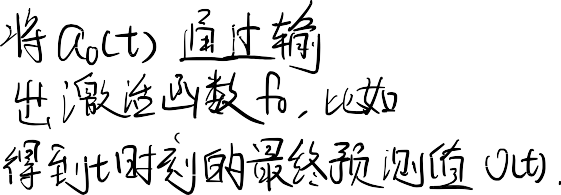 将a₀(t) 通过输
出激活函数f₀,比如
得到t时刻的最终预测值 O(t).